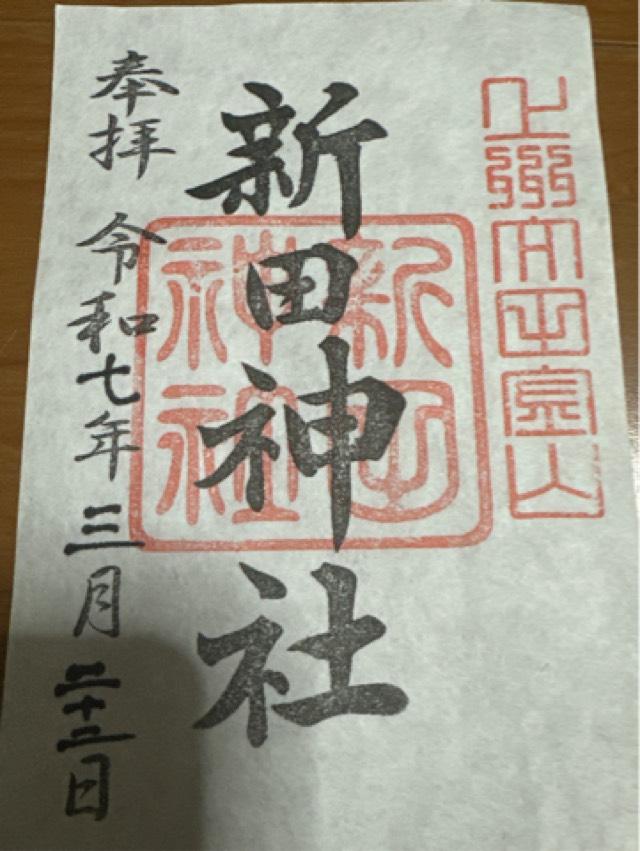 上州太田金山
新田神社
新田
神社
奉拝 令和七年三月二十二日